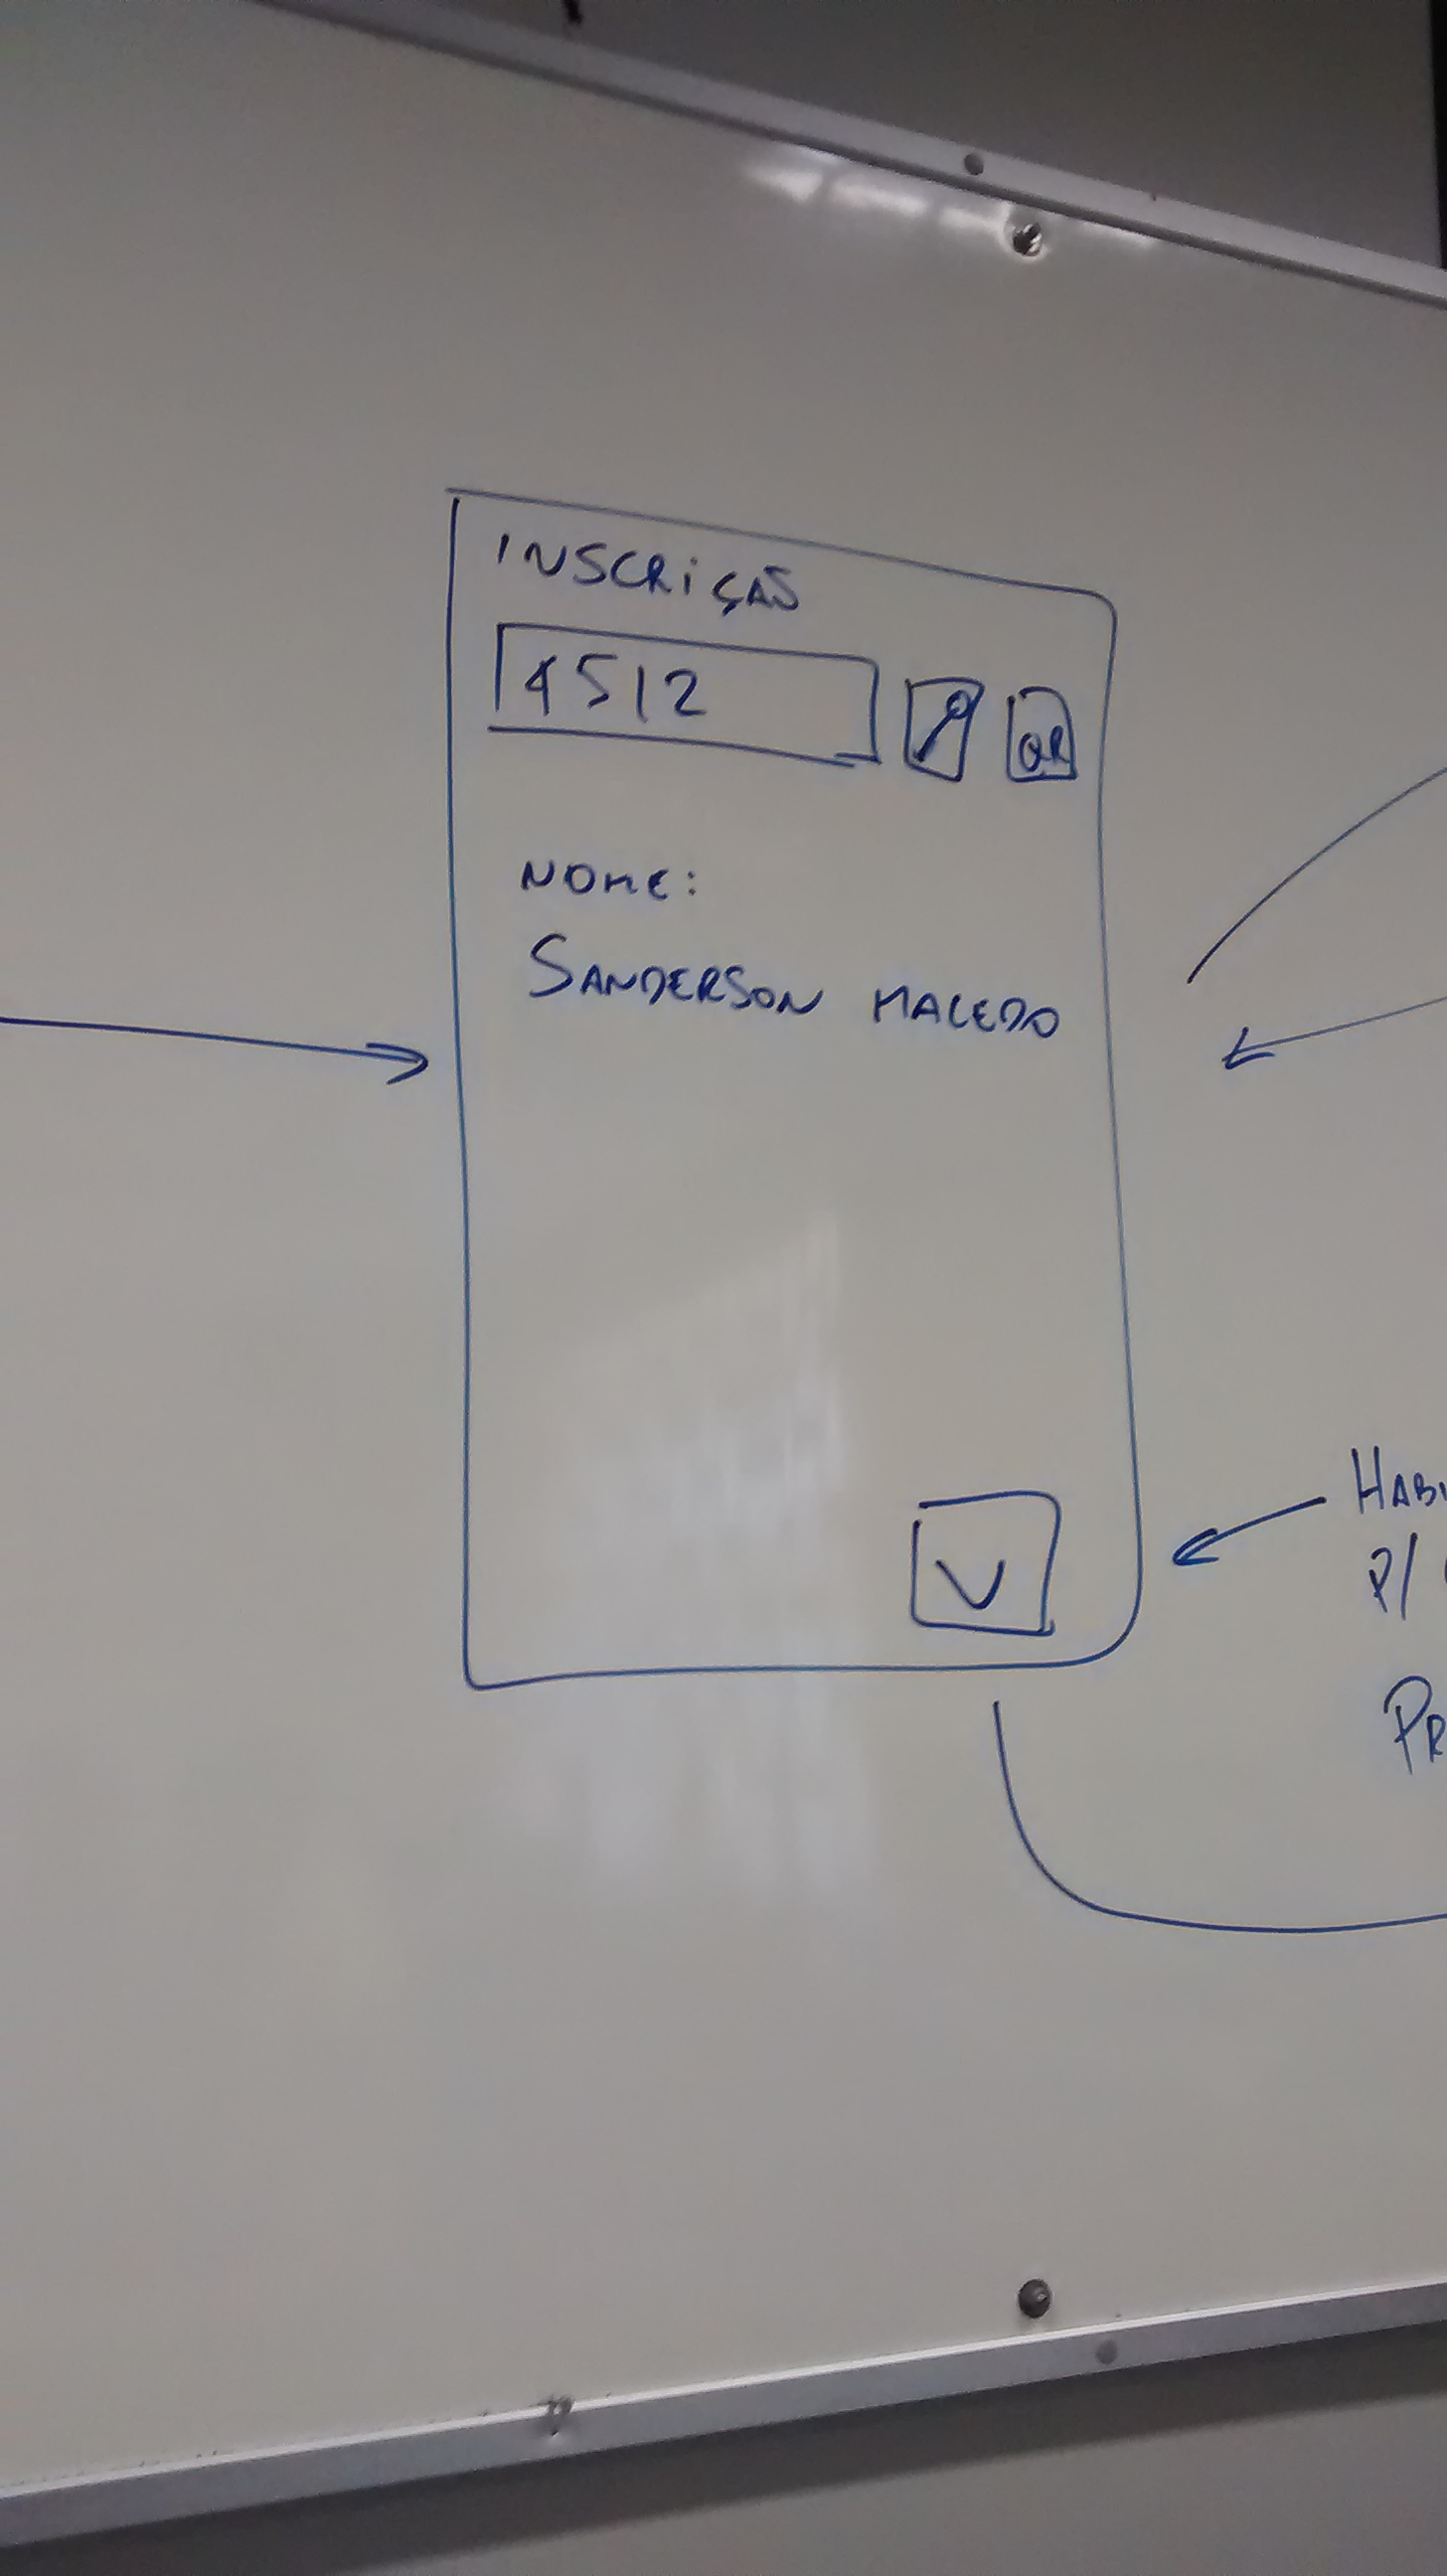 INSCRIÇÃO
4512
QR
NOME:
SANDERSON MACEDO
V
P/